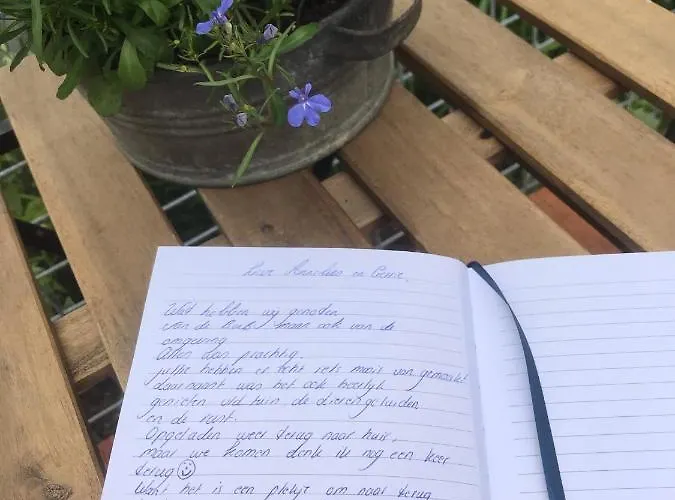 Lieve Annelies en
Wat hebben wij genoten
van de rust, maar ook van de
omgeving.
Alles dan prachtig.
jullie hebben er echt iets moois van gemaakt
daarnaast was het ook heerlijk
genieten v/d tuin de dierengeluiden
en de rust.
Opgeladen weer terug naar huis,
maar we komen denk ik nog een keer
terug
Want het is een plekje om naar terug